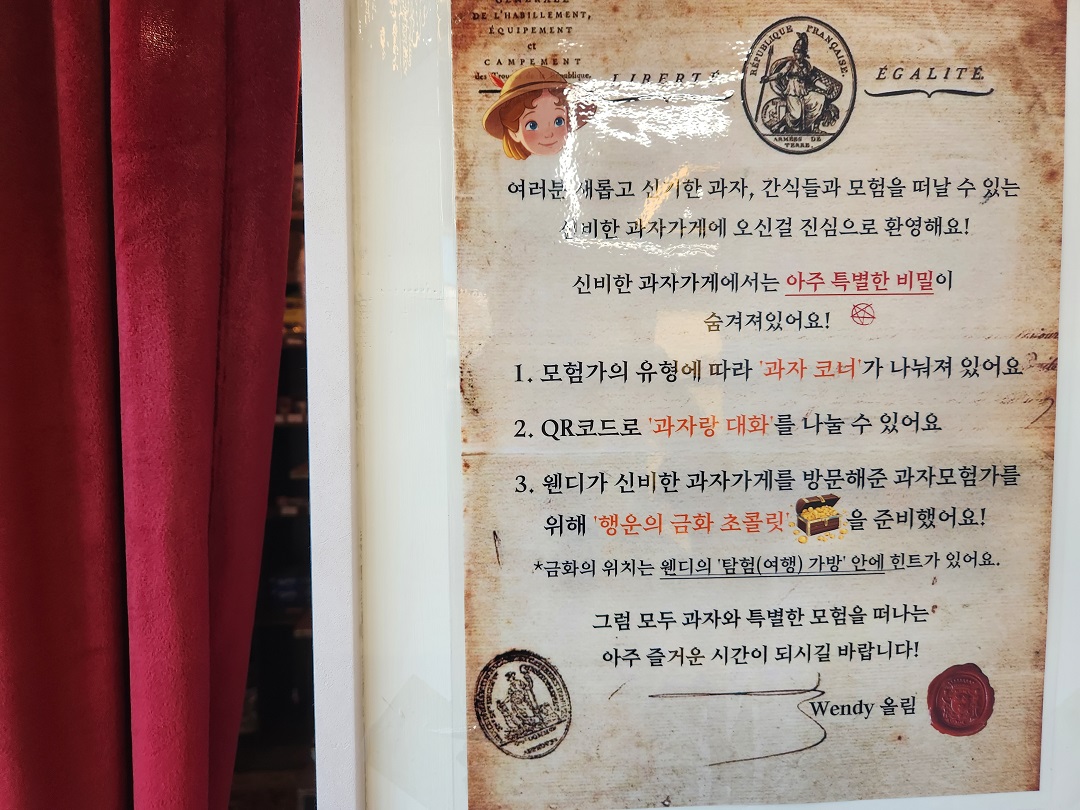 GÉNÉRALE
DE L'HABILLEMENT,
ÉQUIPEMENT
et
CAMPEMENT
des
LIBERTÉ
RÉPUBLIQUE FRANÇAISE.
ARMÉES DE
TERRE.
ÉGALITÉ.
여러분 새롭고 신기한 과자, 간식들과 모험을 떠날 수 있는
신비한 과자가게에 오신걸 진심으로 환영해요!
신비한 과자가게에서는 아주 특별한 비밀이
숨겨져있어요!
1. 모험가의 유형에 따라 '과자 코너'가 나눠져 있어요
2. QR코드로 '과자랑 대화'를 나눌 수 있어요
3. 웬디가 신비한 과자가게를 방문해준 과자모험가를
위해 '행운의 금화 초콜릿' 을 준비했어요!
*금화의 위치는 웬디의 '탐험(여행) 가방' 안에 힌트가 있어요.
그럼 모두 과자와 특별한 모험을 떠나는
아주 즐거운 시간이 되시길 바랍니다!
Wendy 올림